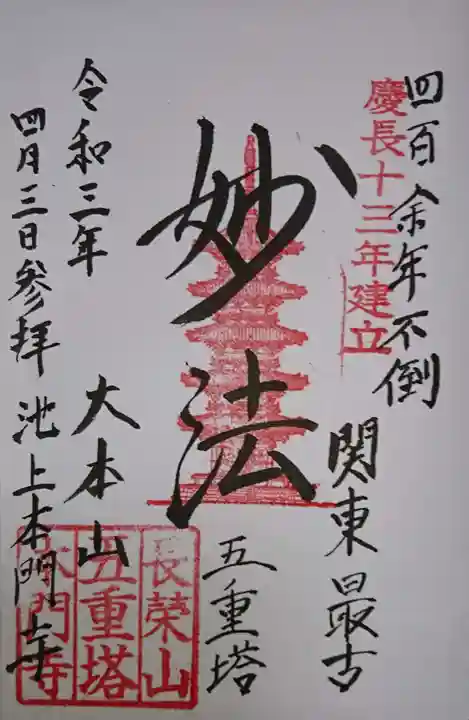 四百余年不倒
慶長十三年建立
関東最古
妙法
五重塔
長榮山
五重塔
本門寺
大本山
池上本門寺
令和三年
四月三日参拝